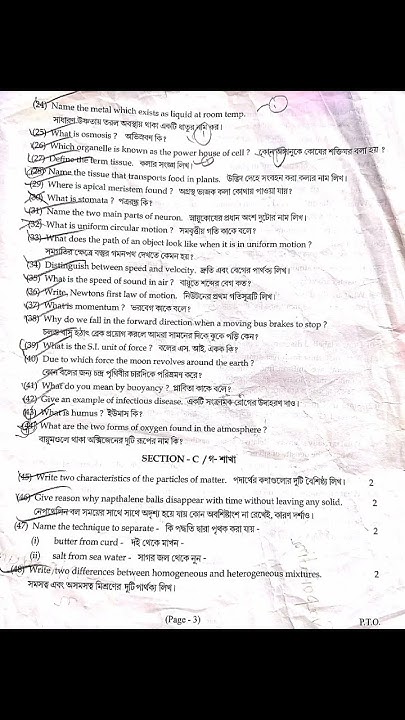 (24) Name the metal which exists as liquid at room temp.
সাধারণ উষ্ণতায় তরল অবস্থায় থাকা একটি ধাতুর নাম কর।
(25) What is osmosis ? অভিস্রবণ কি?
(26) Which organelle is known as the power house of cell ? কোন অঙ্গাণুকে কোষের শক্তিঘর বলা হয় ?
(27) Define the term tissue. কলার সংজ্ঞা লিখ।
(28) Name the tissue that transports food in plants. উদ্ভিদ দেহে খাদ্য সংবহন করা কলার নাম লিখ।
(29) Where is apical meristem found ? অগ্রস্থ ভাজক কলা কোথায় পাওয়া যায়?
(30) What is stomata ? পত্ররন্ধ্র কি?
(31) Name the two main parts of neuron. স্নায়ুকোষের প্রধান অংশ দুটোর নাম লিখ।
(32) What is uniform circular motion ? সমবৃত্তীয় গতি কাকে বলে?
(33) What does the path of an object look like when it is in uniform motion ?
সমগতির ক্ষেত্রে বস্তুর গমনপথ দেখতে কেমন হয়?
(34) Distinguish between speed and velocity. দ্রুতি এবং বেগের পার্থক্য লিখ।
(35) What is the speed of sound in air ? বায়ুতে শব্দের বেগ কত?
(36) Write Newtons first law of motion. নিউটনের প্রথম গতিসূত্রটি লিখ।
(37) What is momentum ? ভরবেগ কাকে বলে?
(38) Why do we fall in the forward direction when a moving bus brakes to stop ?
চলন্ত বাস হঠাৎ ব্রেক প্রয়োগ করলে আমরা সামনের দিকে ঝুকে পড়ি কেন?
(39) What is the S.I. unit of force ? বলের এস. আই. একক কি?
(40) Due to which force the moon revolves around the earth ?
কোন বলের জন্য চন্দ্র পৃথিবীর চারদিকে পরিভ্রমন করে?
(41) What do you mean by buoyancy ? প্লাবিতা কাকে বলে?
(42) Give an example of infectious disease. একটি সংক্রামক রোগের উদাহরণ দাও।
(43) What is humus ? ইউমাস কি?
(44) What are the two forms of oxygen found in the atmosphere ?
বায়ুমণ্ডলে থাকা অক্সিজেনের দুটি রূপের নাম কি?
SECTION - C / গ- শাখা
(45) Write two characteristics of the particles of matter. পদার্থের কণাগুলোর দুটি বৈশিষ্ট্য লিখ। 2
(46) Give reason why napthalene balls disappear with time without leaving any solid. 2
নেপথেলিন বল সময়ের সাথে সাথে অদৃশ্য হয়ে যায় কোন অবশিষ্টাংশ না রেখেই, কারণ দর্শাও।
(47) Name the technique to separate - কি পদ্ধতি দ্বারা পৃথক করা যায় - 2
(i) butter from curd - দই থেকে মাখন -
(ii) salt from sea water - সাগর জল থেকে নুন -
(48) Write two differences between homogeneous and heterogeneous mixtures. 2
সমসত্ত্ব এবং অসমসত্ত্ব মিশ্রণের দুটি পার্থক্য লিখ।
(Page - 3)
P.T.O.